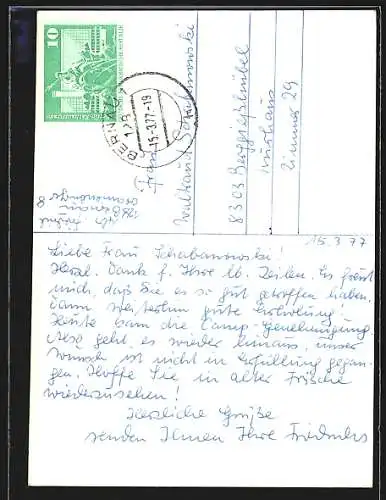 10
BERNAU
-15.3.77-19
Frau
Waltraud Schabanowski
8303 Berggießhübel
Kurhaus
Zimmer 29
15.3.77
Liebe Frau Schabanowski!
Herzl. Dank f. Ihre lb. Zeilen. Es freut
mich, daß Sie es so gut getroffen haben.
Dann weiterhin gute Erholung!
Heute kam die Camp.-Genehmigung
Also geht es wieder hinaus, unser
Wunsch ist nicht in Erfüllung gegan-
gen. Hoffe Sie in alter Frische
wiederzusehen!
Herzliche Grüße
senden Ihnen Ihre